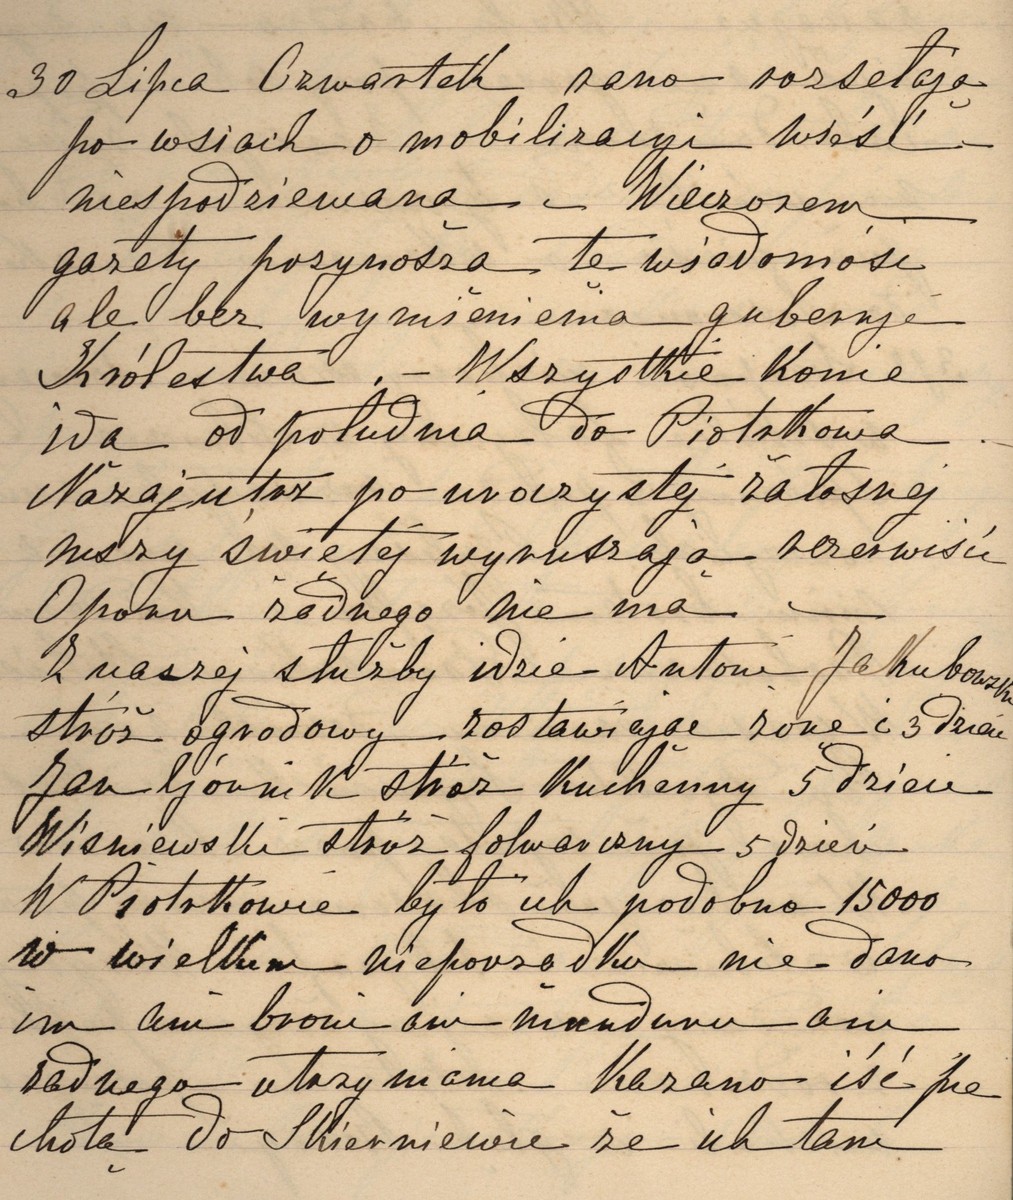 30 Lipca Czwartek rano rozsełają
po wsiach o mobilizacyi wieść –
niespodziewana – Wieczorem
gazety przynoszą te wiadomości
ale bez wymienienia gubernji
Królestwa . – Wszystkie Konie
idą od południa do Piotrkowa –
Nazajutrz po uroczystej żałosnej
mszy świętej wyruszają rezerwiści
Oporu żadnego nie ma –
Z naszej służby idzie Antoni Jakubowski
stróż ogrodowy zostawiając żonę i 3 dzieci
Jan stróż Kuchenny 5 dzieci
Wiśniewski stróż folwarczny 5 dzieci
W Piotrkowie było ich podobno 15000
w wielkim nieporządku nie dano
im ani broni ani munduru ani
żadnego utrzymania Kazano iść pie
chotą do Skierniewic że ich tam